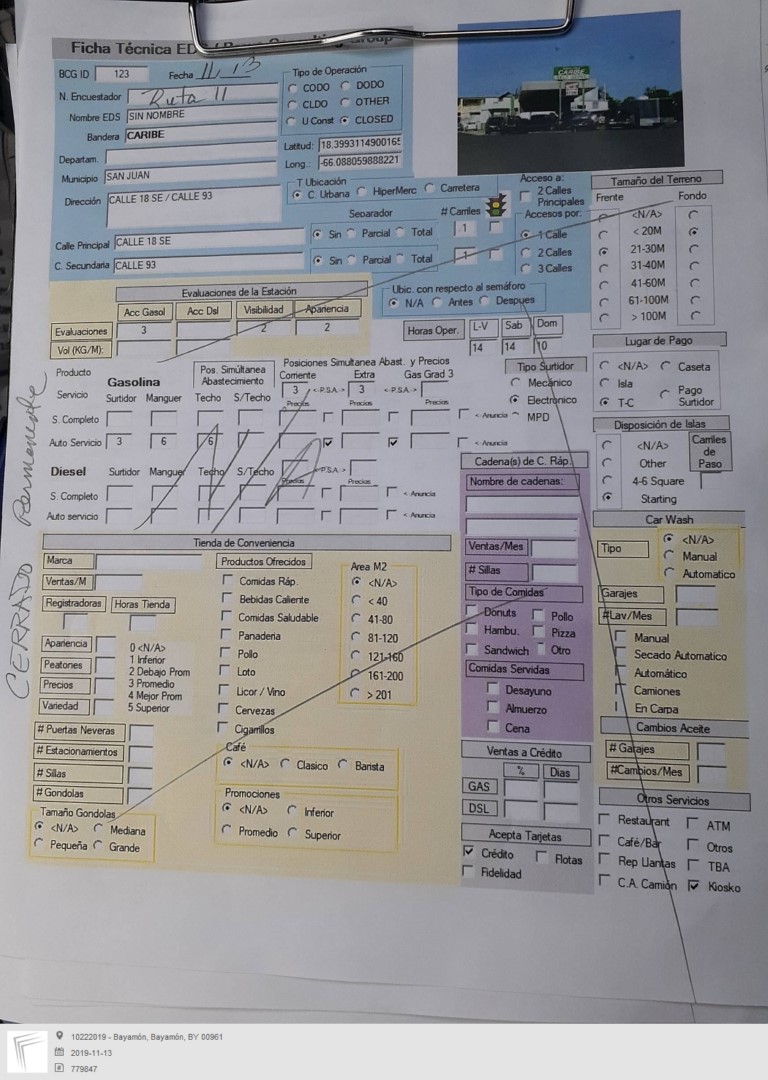 Ficha Técnica ED
BCG ID 123 Fecha 11/13
N. Encuestador Ruta 11
Nombre EDS SIN NOMBRE
Bandera CARIBE
Departam.
Municipio SAN JUAN
Dirección CALLE 18 SE / CALLE 93
Calle Principal CALLE 18 SE
C. Secundaria CALLE 93
Tipo de Operación
CODO DODO
CLDO OTHER
U Const CLOSED
Latitud: 18.3993114900165
Long.: -66.088059888221
T Ubicación
C. Urbana HiperMerc Carretera
Separador # Carriles
Sin Parcial Total 1
Sin Parcial Total 1
CARIBE
Acceso a:
2 Calles
Principales
Accesos por:
1 Calle
2 Calles
3 Calles
Tamaño del Terreno
Frente Fondo
<N/A>
< 20M
21-30M
31-40M
41-60M
61-100M
> 100M
Evaluaciones de la Estación
Acc Gasol Acc Dsl Visibilidad Apariencia
Evaluaciones 3 2 2
Vol (KG/M):
Ubic. con respecto al semáforo
N/A Antes Despues
Horas Oper. L-V Sab Dom
14 14 10
Lugar de Pago
<N/A> Caseta
Isla Pago
T-C Surtidor
Producto
Servicio
Gasolina
Surtidor Manguer
Pos. Simúltanea
Abastecimiento
Techo S/Techo
Posiciones Simultanea Abast. y Precios
Corriente Extra Gas Grad 3
3 <-P.S.A.-> 3 <-P.S.A.->
Precios Precios Precios
S. Completo < Anuncia
Auto Servicio 3 6 6 < Anuncia
Tipo Surtidor
Mecánico
Electrónico
MPD
Diesel Surtidor Manguer Techo S/Techo P.S.A.->
Precios Precios
S. Completo < Anuncia
Auto servicio < Anuncia
CERRADO Permanente
Disposición de Islas
<N/A>
Other
4-6 Square
Starting
Carriles
de
Paso
Cadena(s) de C. Ráp.
Nombre de cadenas:
Ventas/Mes
# Sillas
Tipo de Comidas
Donuts Pollo
Hambu. Pizza
Sandwich Otro
Comidas Servidas
Desayuno
Almuerzo
Cena
Car Wash
Tipo
<N/A>
Manual
Automatico
Garajes
#Lav/Mes
Manual
Secado Automatico
Automático
Camiones
En Carpa
Cambios Aceite
# Garajes
#Cambios/Mes
Tienda de Conveniencia
Marca
Ventas/M
Registradoras Horas Tienda
Apariencia
Peatones
Precios
Variedad
0 <N/A>
1 Inferior
2 Debajo Prom
3 Promedio
4 Mejor Prom
5 Superior
# Puertas Neveras
# Estacionamientos
# Sillas
# Gondolas
Tamaño Gondolas
<N/A> Mediana
Pequeña Grande
Productos Ofrecidos
Comidas Ráp.
Bebidas Caliente
Comidas Saludable
Panaderia
Pollo
Loto
Licor / Vino
Cervezas
Cigarrillos
Area M2
<N/A>
< 40
41-80
81-120
121-160
161-200
> 201
Café
<N/A> Clasico Barista
Promociones
<N/A> Inferior
Promedio Superior
Ventas a Crédito
% Dias
GAS
DSL
Acepta Tarjetas
Crédito Flotas
Fidelidad
Otros Servicios
Restaurant ATM
Café/Bar Otros
Rep Llantas TBA
C.A. Camión Kiosko
10222019 - Bayamón, Bayamón, BY 00961
2019-11-13
779847